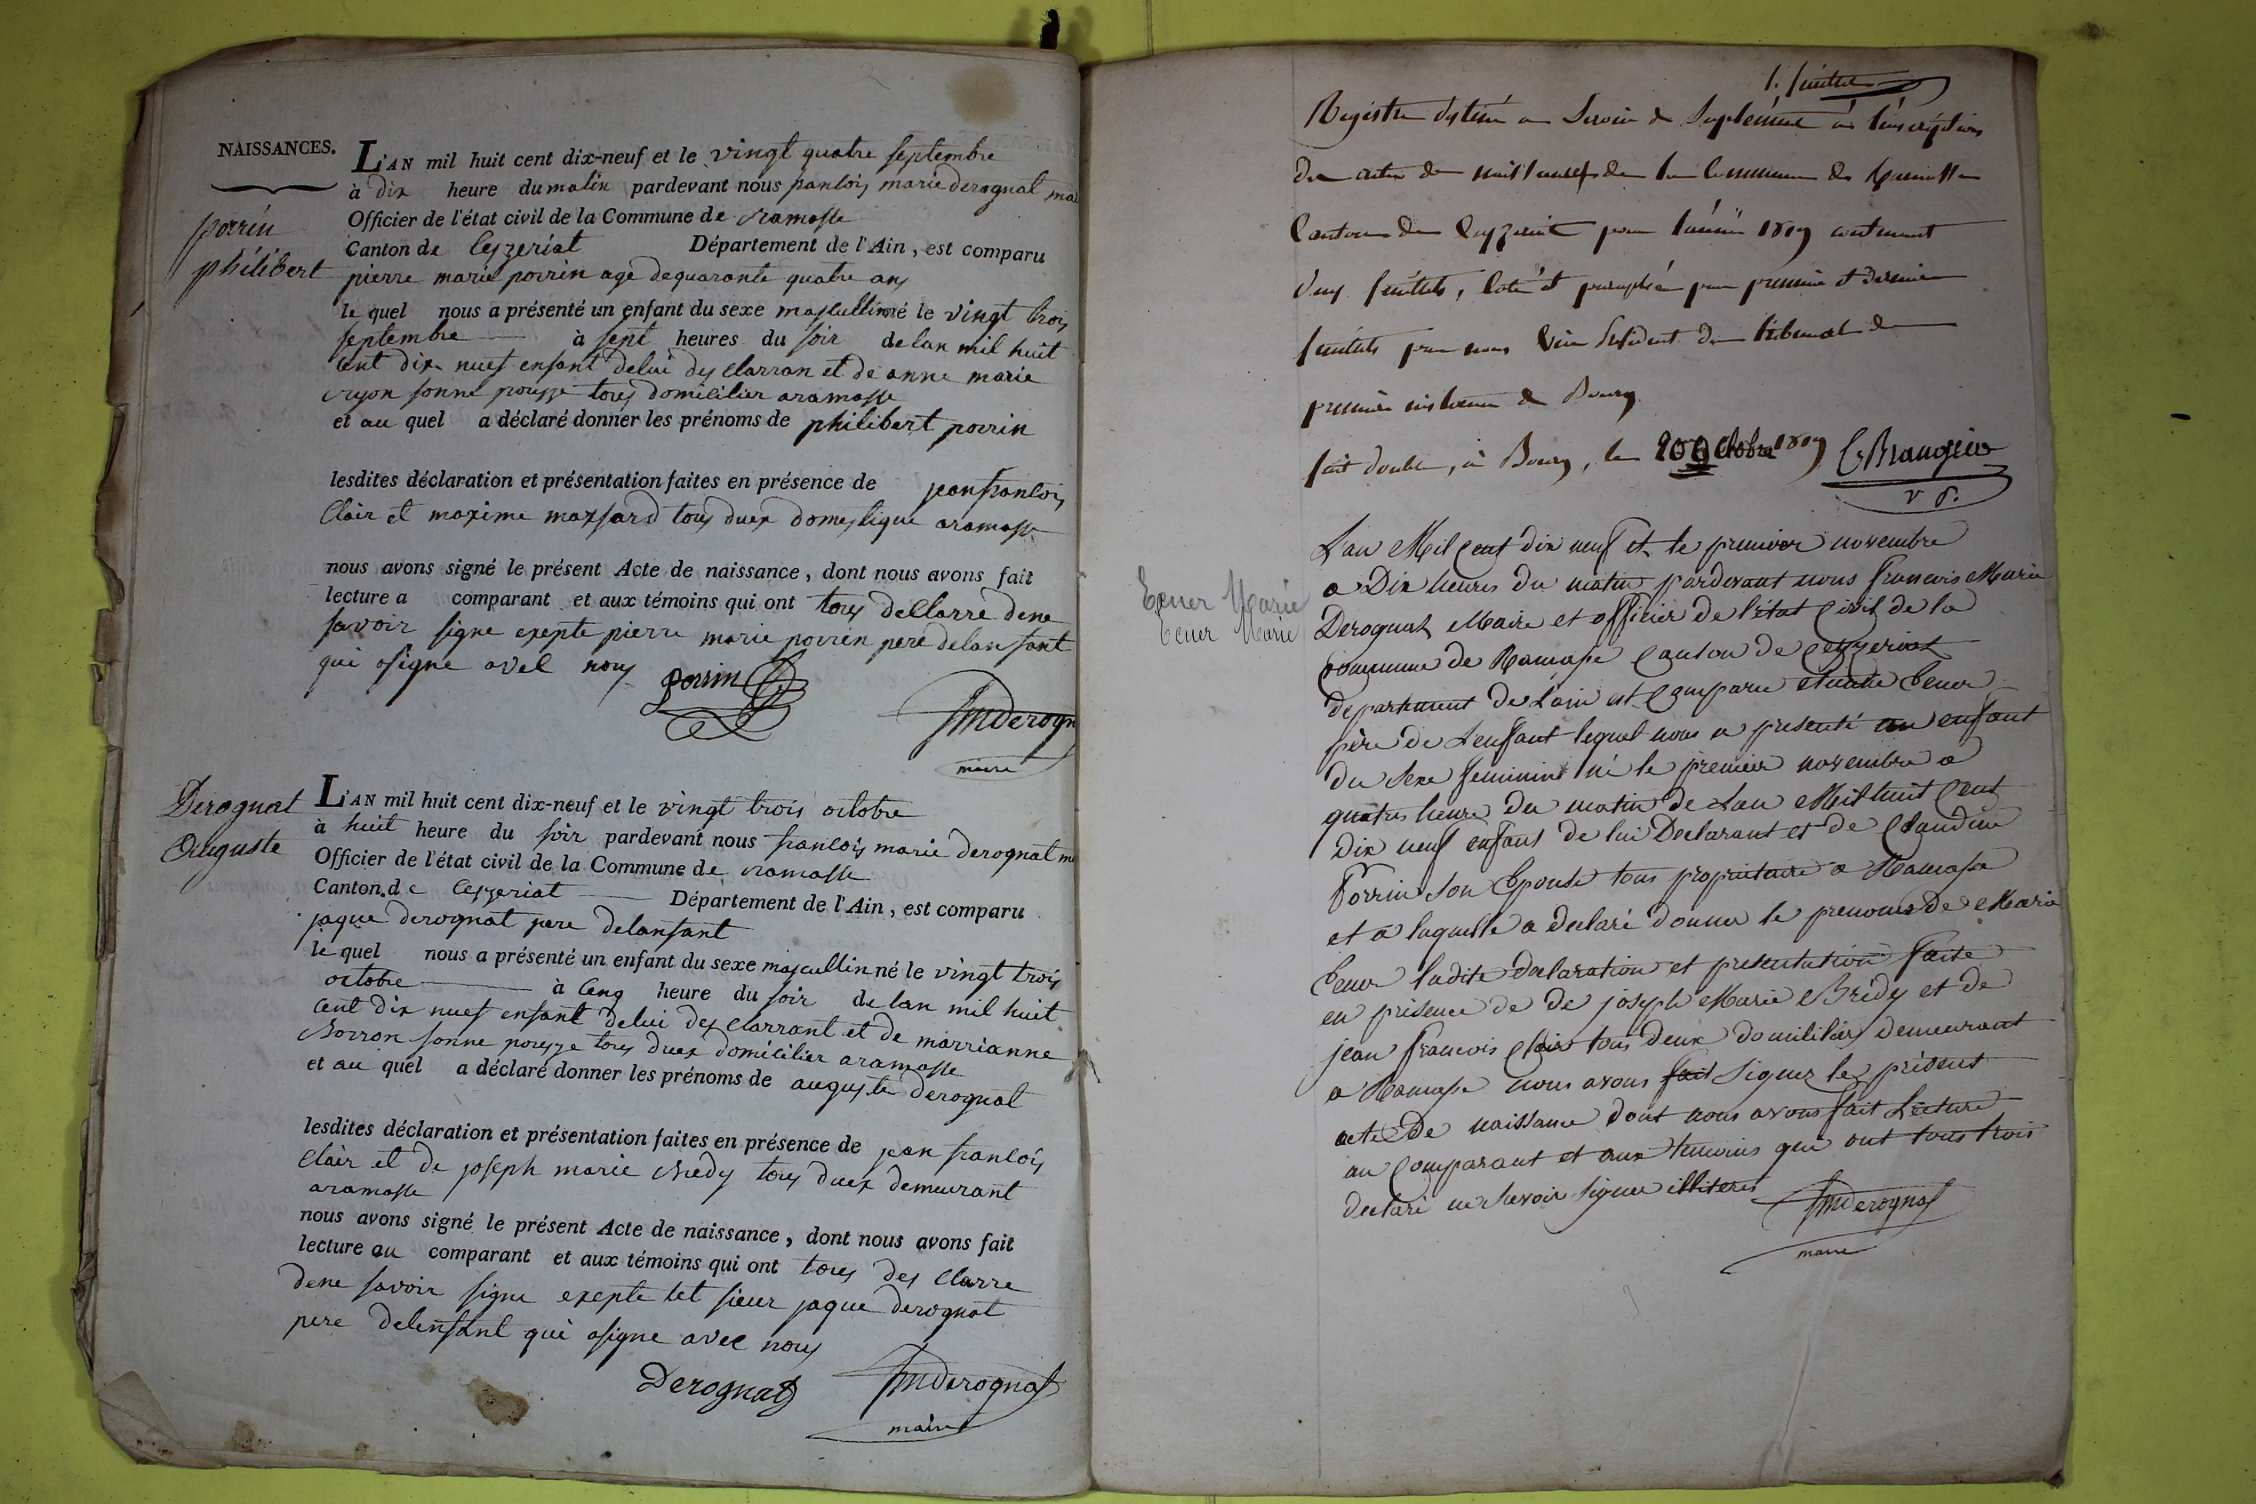 NAISSANCES.
porrin
philibert
L'AN mil huit cent dix-neuf et le vingt quatre septembre
à dix heure du matin pardevant nous franlois marie derognat mai
Officier de l'état civil de la Commune de ramasse
Canton de Ceyzeriat Département de l'Ain, est comparu
pierre marie porrin age dequarante quatre ans
le quel nous a présenté un enfant du sexe mascullin né le vingt trois
septembre à sept heures du soir delan mil huit
cent dix nuef enfant delui des clarran et de anne marie
sonne pousse tous domicilier aramasse
et au quel a déclaré donner les prénoms de philibert porrin
lesdites déclaration et présentation faites en présence de jean franlois
Clair et maxime massard tous duex domestique aramasse
nous avons signé le présent Acte de naissance, dont nous avons fait
lecture a comparant et aux témoins qui ont tous decllarré dene
savoir signe exepte pierre marie porrin pere delansant
qui asigne avel nous
porrin
fmderogn
maire
Derognat
Auguste
L'AN mil huit cent dix-neuf et le vingt trois octobre
à huit heure du soir pardevant nous franlois marie derognat m
Officier de l'état civil de la Commune de ramasse
Canton de Ceyzeriat Département de l'Ain, est comparu
jaque derognat pere delansant
le quel nous a présenté un enfant du sexe mascullin né le vingt trois
octobre à cenq heure du soir delan mil huit
cent dix nuef enfant delui des clarrant et de marrianne
sonne pousse tous duex domicilier aramasse
et au quel a déclaré donner les prénoms de auguste derognat
lesdites déclaration et présentation faites en présence de jean franlois
Clair et de joseph marie Bredy tous duex demeurant
aramasse
nous avons signé le présent Acte de naissance, dont nous avons fait
lecture au comparant et aux témoins qui ont tous des clarre
dene savoir signe exepte let sieur jaque derognat
pere delensant qui asigne avec nous
Derognat
fmderognat
maire
1. feuillet
Registre destiné a Servir de Suplément à l'inscription
des actes de naissances de la Commune de Ramasse
Canton de Ceyzeriat pour l'année 1819 contenant
feuillets, coté et paraphé par premier et dernier
feuillets par nous Vice Président du tribunal de
première instance de Bourg
fait double, à Bourg, le 20 Octobre 1819
v p.
Tener Marie
Tener Marie
L'an Mil Cent dix neuf et le premier novembre
a Dix heures du matin pardevant nous francois Marie
Derognat Maire et officier de l'état Civil de la
Commune de Ramasse Canton de Ceyzeriat
departement de Lain est Comparu Tener
père de Lenfant lequel nous a presenté un enfant
du Sexe feminin né le premier novembre a
quatres heure du matin de Lan Mil huit Cent
dix neuf enfant de lui Declarant et de Claudine
Porrin Son Epouse tous proprietaire a Ramasse
et a laquelle a declaré donner le prenoms de Marie
Tener ladite declaration et presentation faite
en présence de de joseph Marie Bredy et de
jean francois Clair tous deux domiliciés demeurant
a Ramasse nous avons fait Signer le présent
acte De naissance dont nous avons fait Lecture
au Comparant et aux temoins qui ont tous trois
declaré ne Savoir Signer illiteres
fmderognat
maire